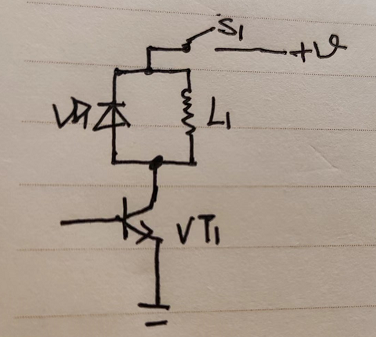 S1
+V
VD
L1
VT1